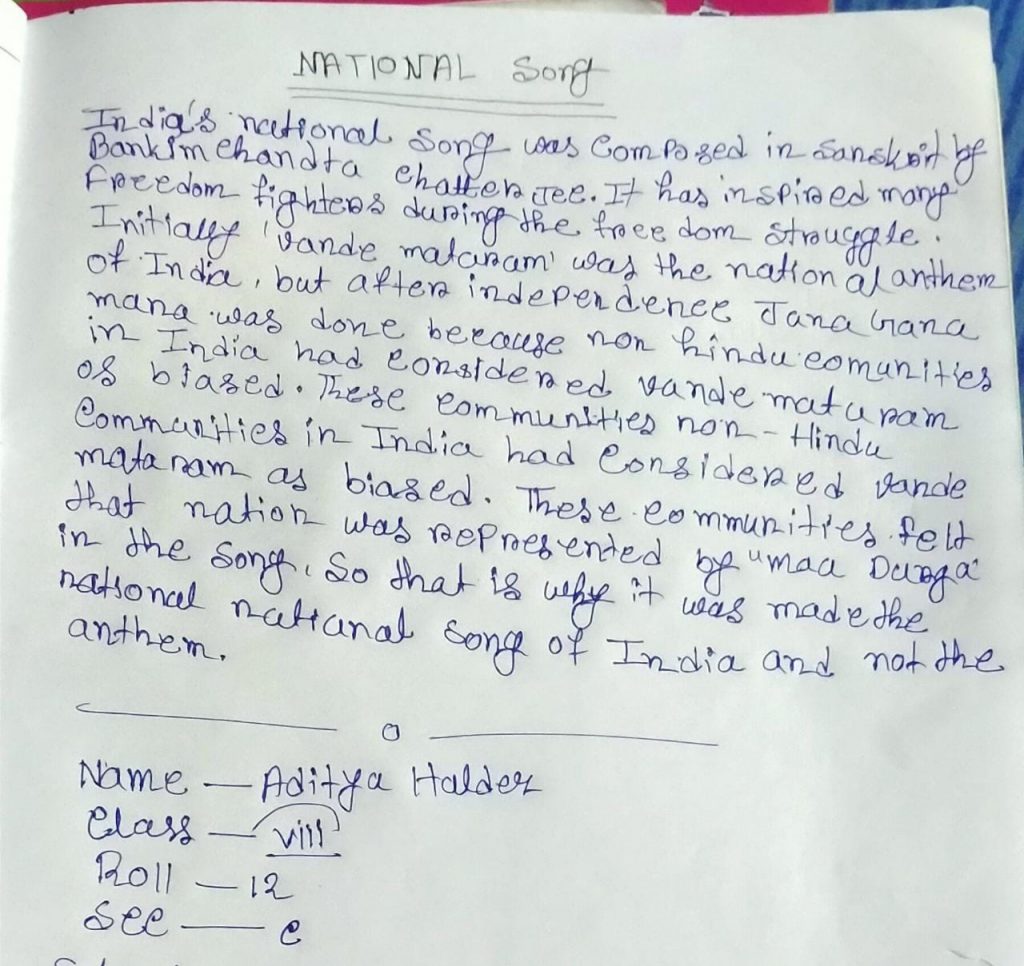 NATIONAL Song
India's national Song was Composed in Sanskrit by
Bankim Chandra Chatter Jee. It has inspired many
Freedom fighters during the free dom struggle.
Initially 'vande mataram' was the nation al anthem
of India, but after independence Jana Gana
mana was done because non hindu comunities
in India had considered vande mataram
os biased. These communities non-Hindu
Communities in India had Considered vande
mataram as biased. These communities felt
that nation was represented by "maa Durga"
in the song. So that is why it was made the
national natianal song of India and not the
anthem.
Name — Aditya Halder
Class — viii
Roll — 12
Sec — c